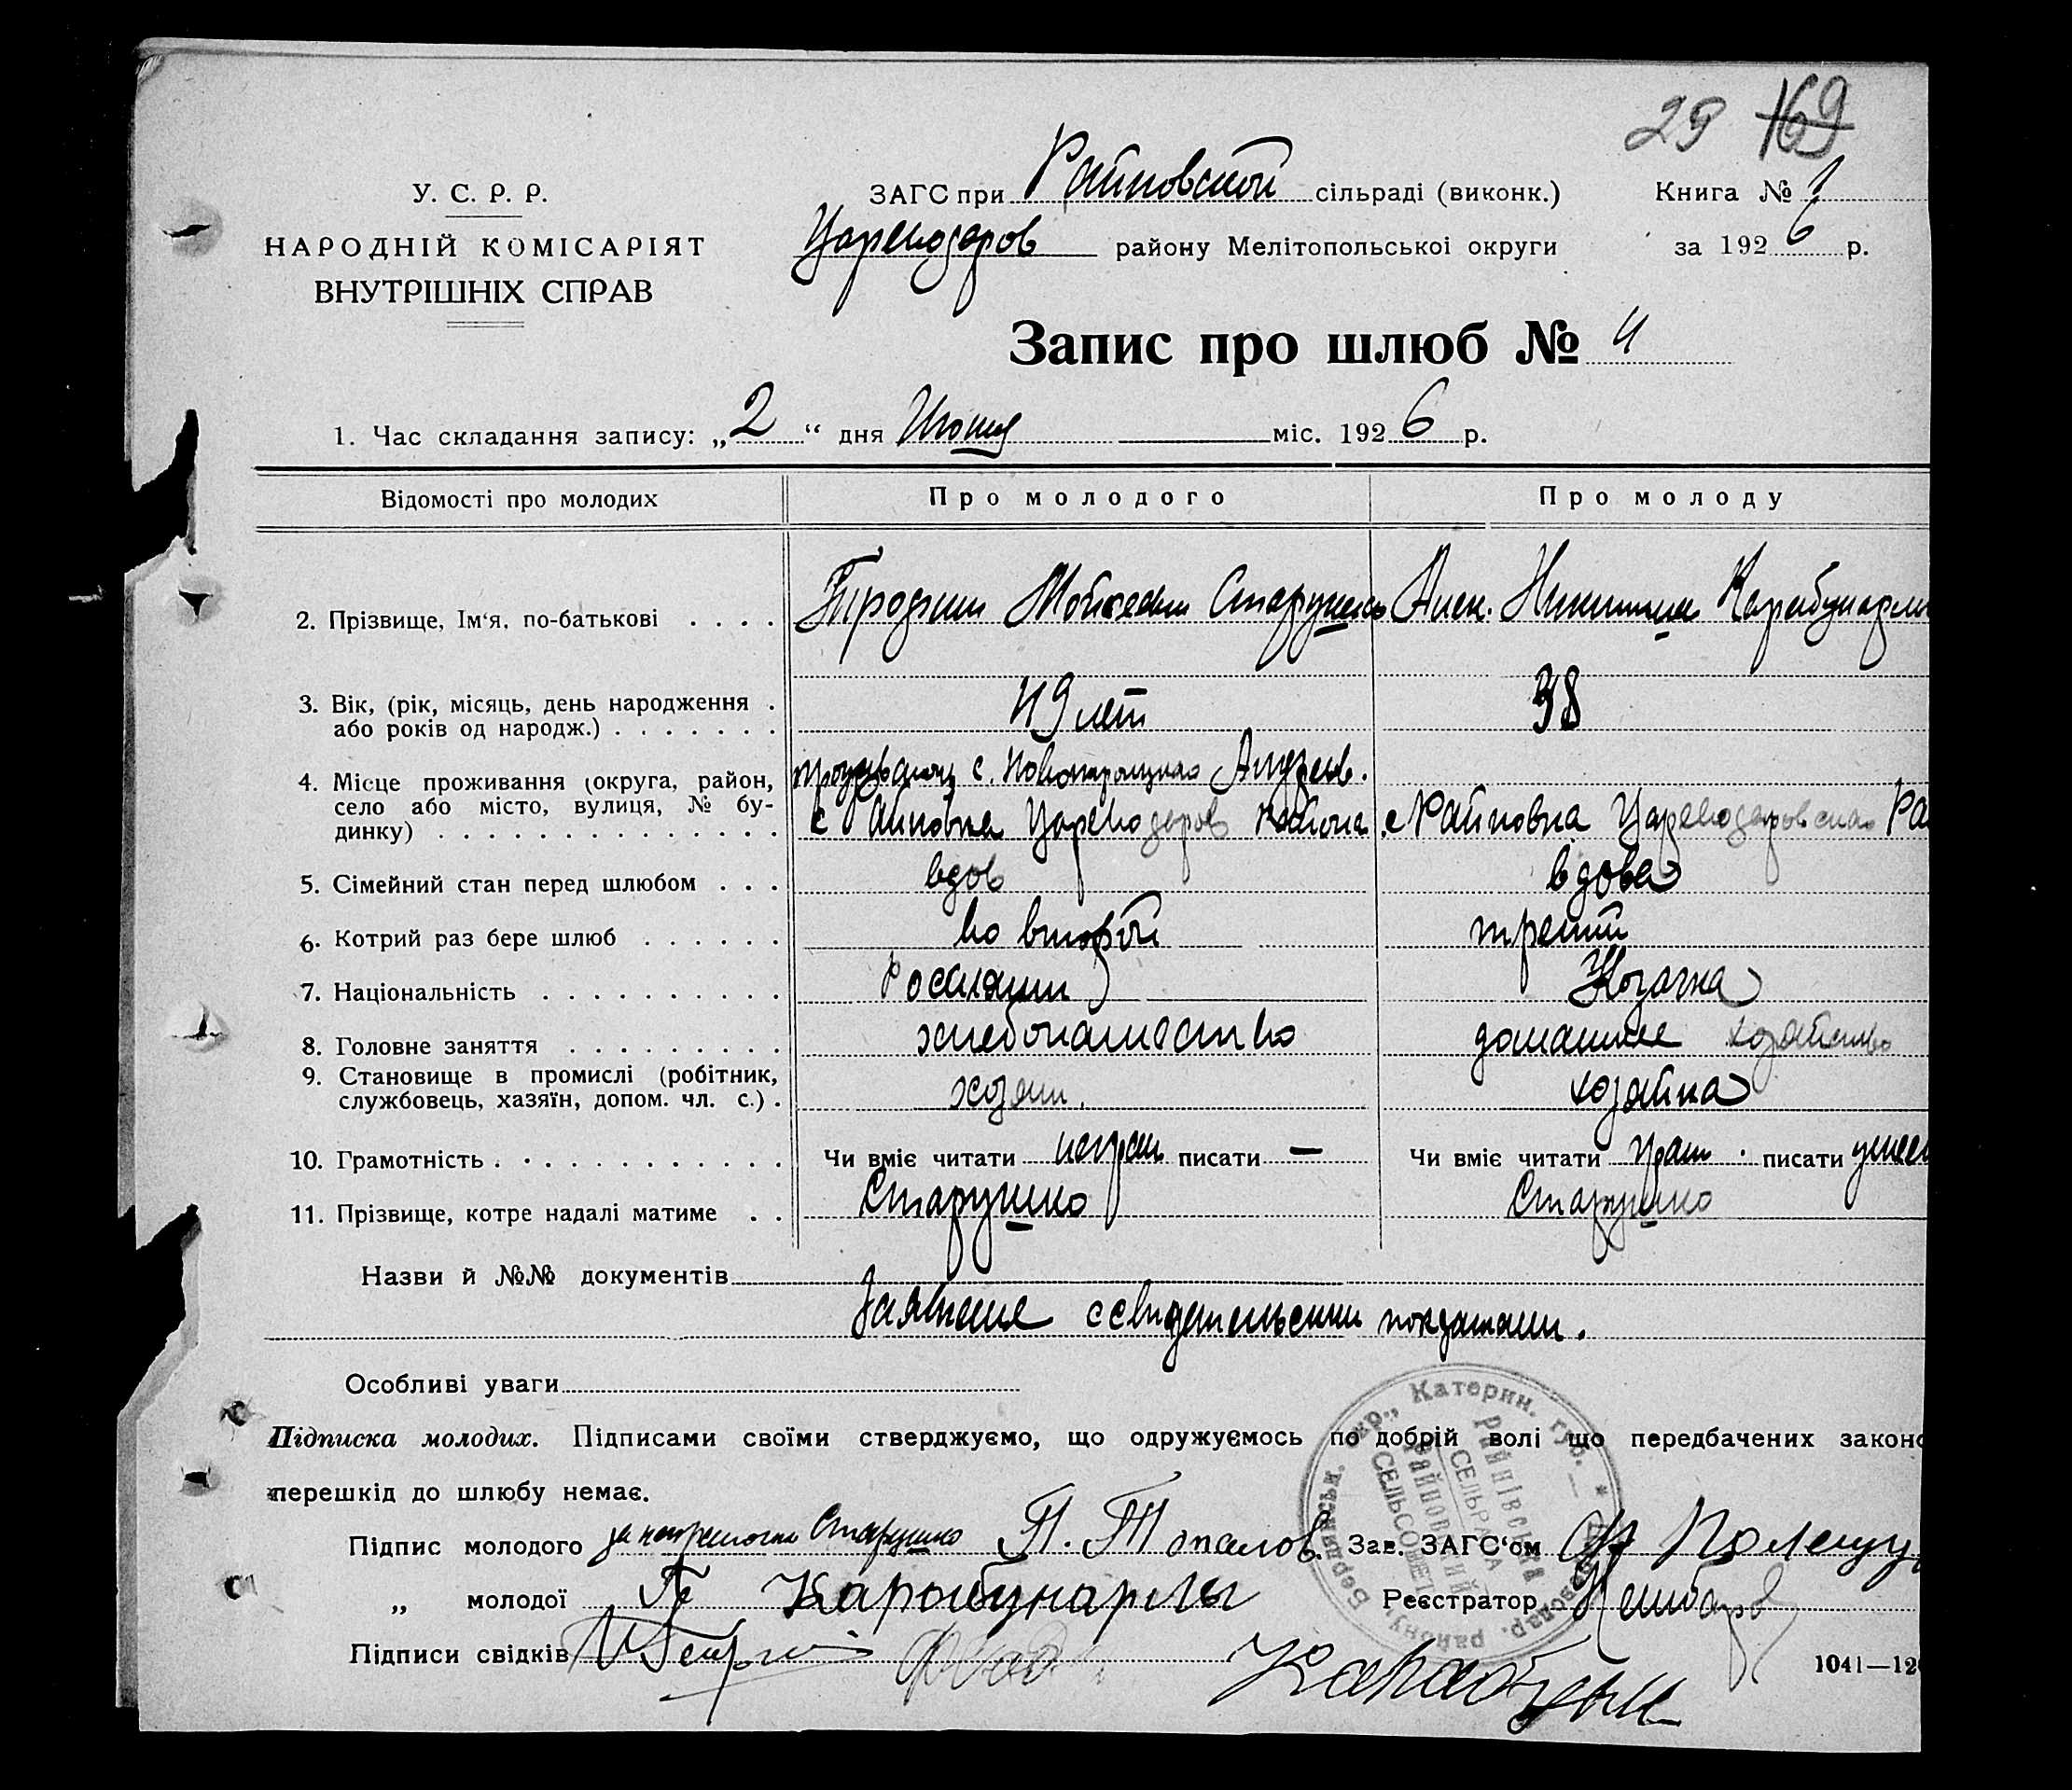 29 169
У. С. Р. Р.
НАРОДНІЙ КОМІСАРІЯТ
ВНУТРІШНІХ СПРАВ
ЗАГС при Райновской сільраді (виконк.) Книга № 1
Царенодаров району Мелітопольської округи за 1926 р.
Запис про шлюб № 4
1. Час складання запису: „2“ дня міс. 1926 р.
Відомості про молодих Про молодого Про молоду
2. Прізвище, Ім'я, по-батькові Старушко
3. Вік, (рік, місяць, день народження 49 лет 38
або років од народж.)
4. Місце проживання (округа, район, с. Андреев.
село або місто, вулиця, № бу- с Райновка Царенодаров района с Райновка Царенодаровска Ра
динку)
5. Сімейний стан перед шлюбом вдов вдова
6. Котрий раз бере шлюб во второй третий
7. Національність Россиянин Козачка
8. Головне заняття хлебопашество домашнее хозяйство
9. Становище в промислі (робітник, хозяин. хозяйка
службовець, хазяїн, допом. чл. с.)
10. Грамотність Чи вміє читати неграм писати — Чи вміє читати грам. писати умеет
11. Прізвище, котре надалі матиме Старушко Старушко
Назви й №№ документів
Заявление
Особливі уваги
Підписка молодих. Підписами своїми стверджуємо, що одружуємось по добрій волі що передбачених законо
перешкід до шлюбу немає.
Підпис молодого за неграмотн Старушко П. Топалов. Зав. ЗАГС‘ом Полещу
„ молодої Карабунарлы Реєстратор
Підписи свідків
1041—12
Бердянськ. окр., Катерин. губ.
району
РАЙНІВСЬКА
СЕЛЬРАДА
РАЙНОВСКИЙ
СЕЛЬСОВЕТ